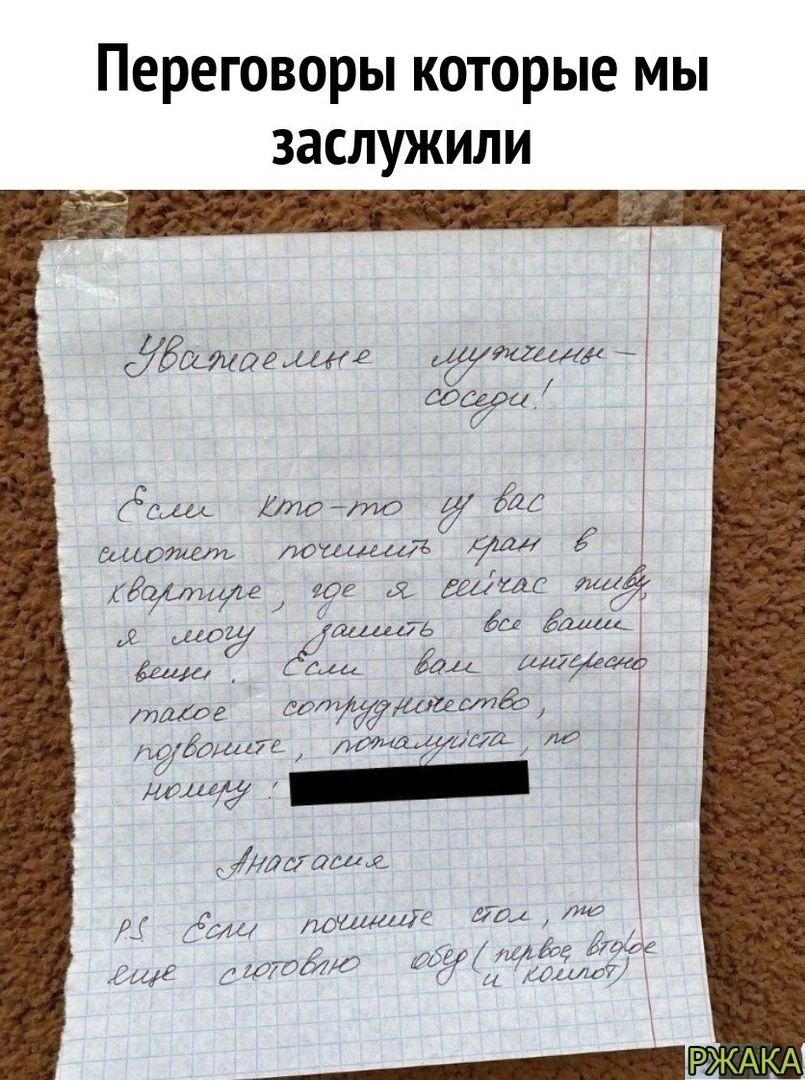 Переговоры которые мы
заслужили
Уважаемые мужчины-
соседи!
Если кто-то из вас
сможет починить кран в
квартире, где я сейчас живу,
я могу зашить все ваши
вещи. Если вам интересно
такое сотрудничество,
позвоните, пожалуйста, по
номеру:
Анастасия
P.S Если почините стол, то
еще сготовлю обед (первое, второе
и компот)
РЖАКА